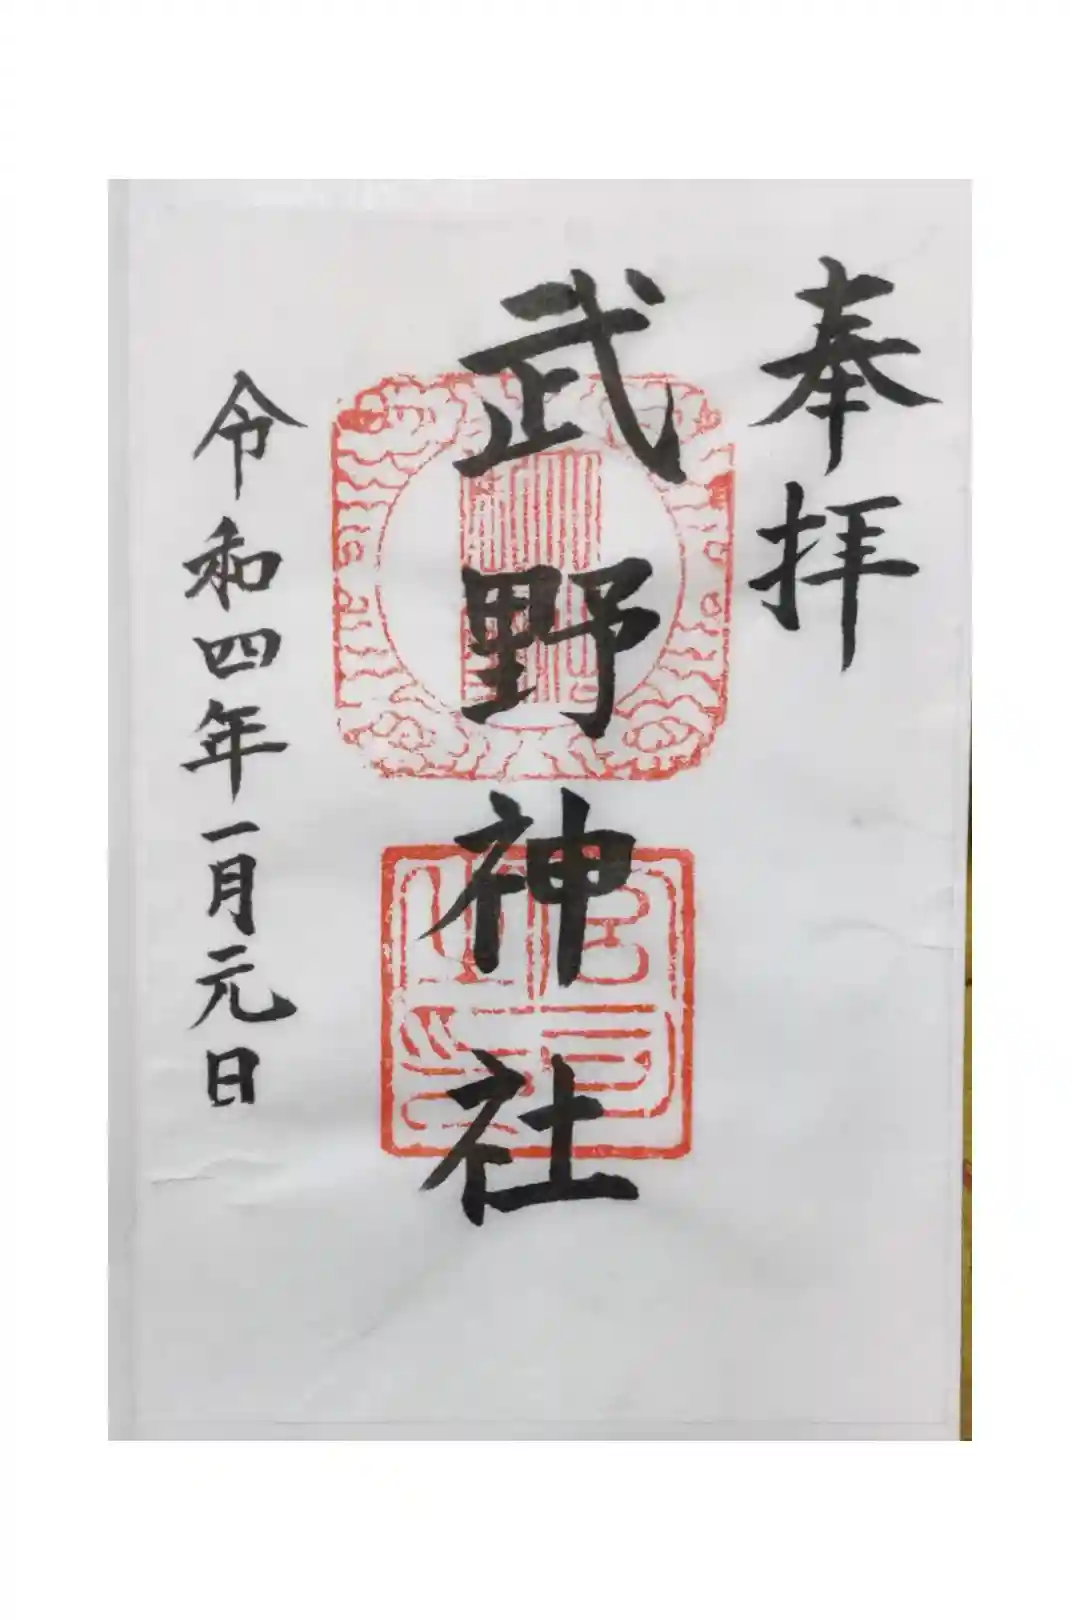 奉拝
武野神社
令和四年一月元日